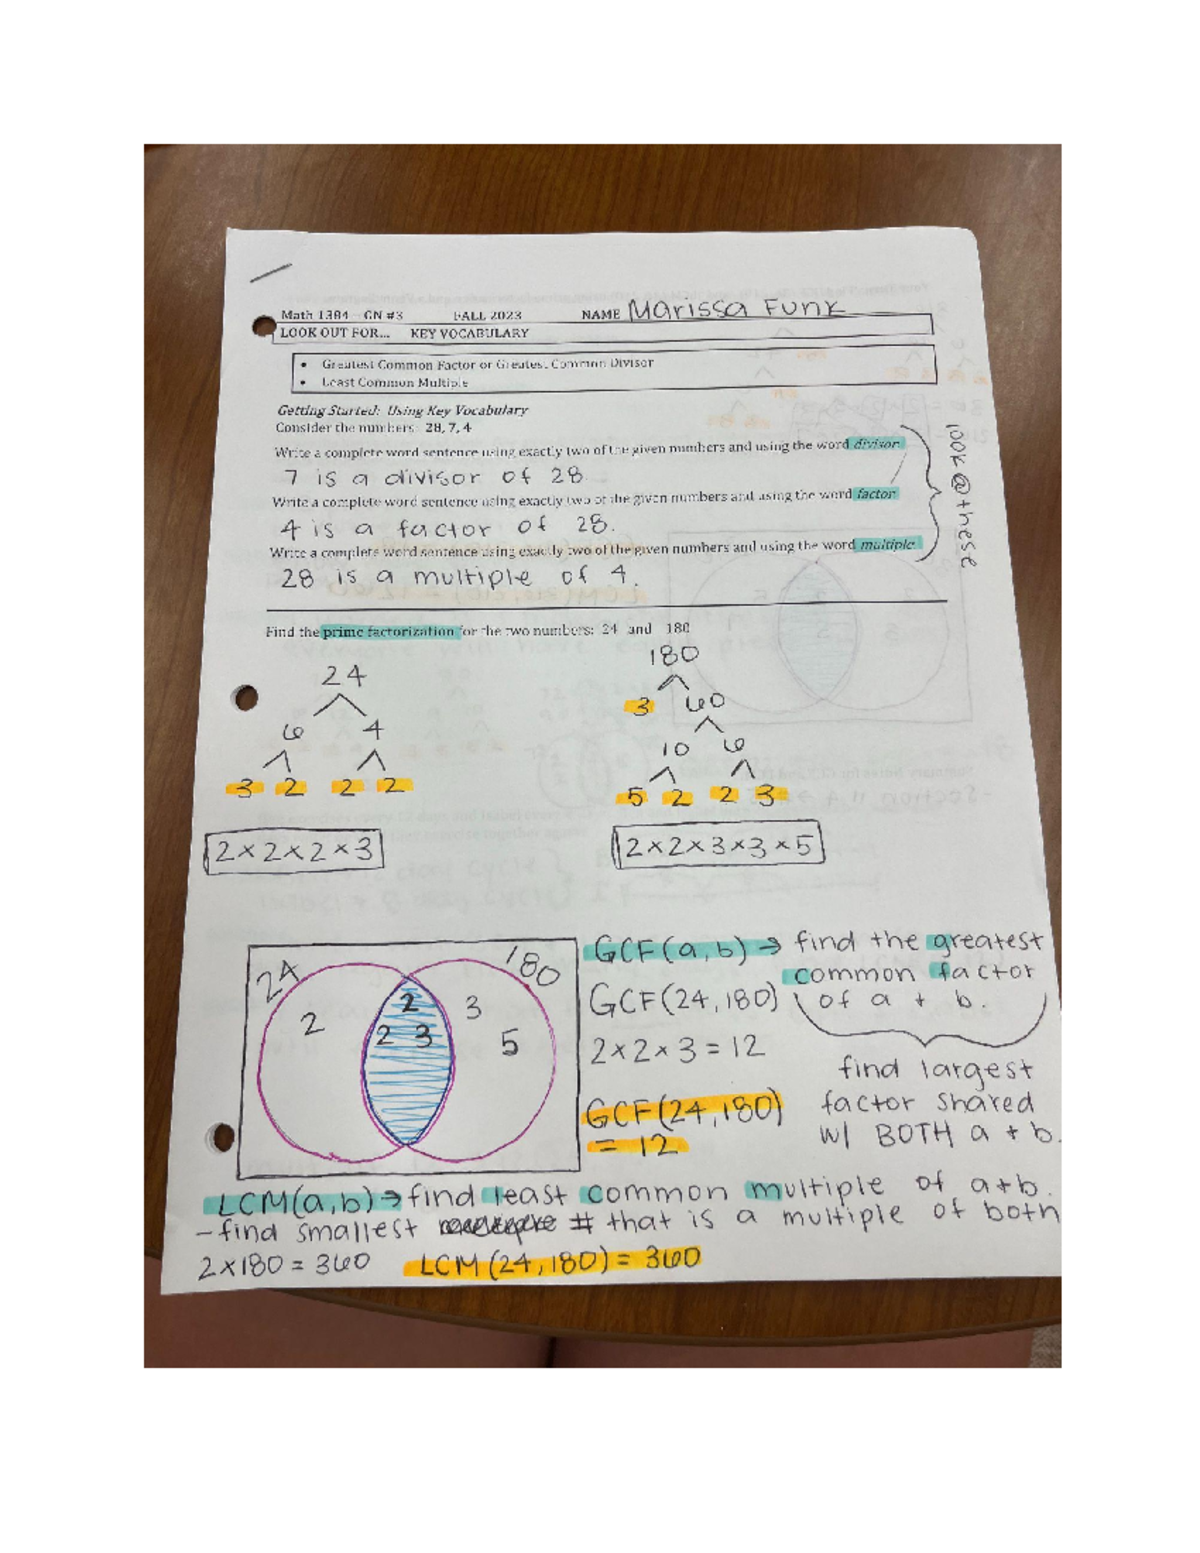 Math 1384 - GN #3 FALL 2023 NAME Marissa Funk
LOOK OUT FOR... KEY VOCABULARY
• Greatest Common Factor or Greatest Common Divisor
• Least Common Multiple
Getting Started: Using Key Vocabulary
Consider the numbers: 28, 7, 4
Write a complete word sentence using exactly two of the given numbers and using the word divisor.
7 is a divisor of 28.
Write a complete word sentence using exactly two of the given numbers and using the word factor.
4 is a factor of 28.
Write a complete word sentence using exactly two of the given numbers and using the word multiple.
28 is a multiple of 4.
look @ these
Find the prime factorization for the two numbers: 24 and 180
24
6 4
3 2 2 2
2×2×2×3
180
3 60
10 6
5 2 2 3
2×2×3×3×5
24 180
2 2 3
2 3 5
GCF(a,b) → find the greatest
common factor
of a + b.
GCF(24,180)
2×2×3=12
GCF(24,180)
= 12
find largest
factor shared
w/ BOTH a + b.
LCM(a,b) → find least common multiple of a+b.
- find smallest # that is a multiple of both
2×180 = 360 LCM(24,180) = 360